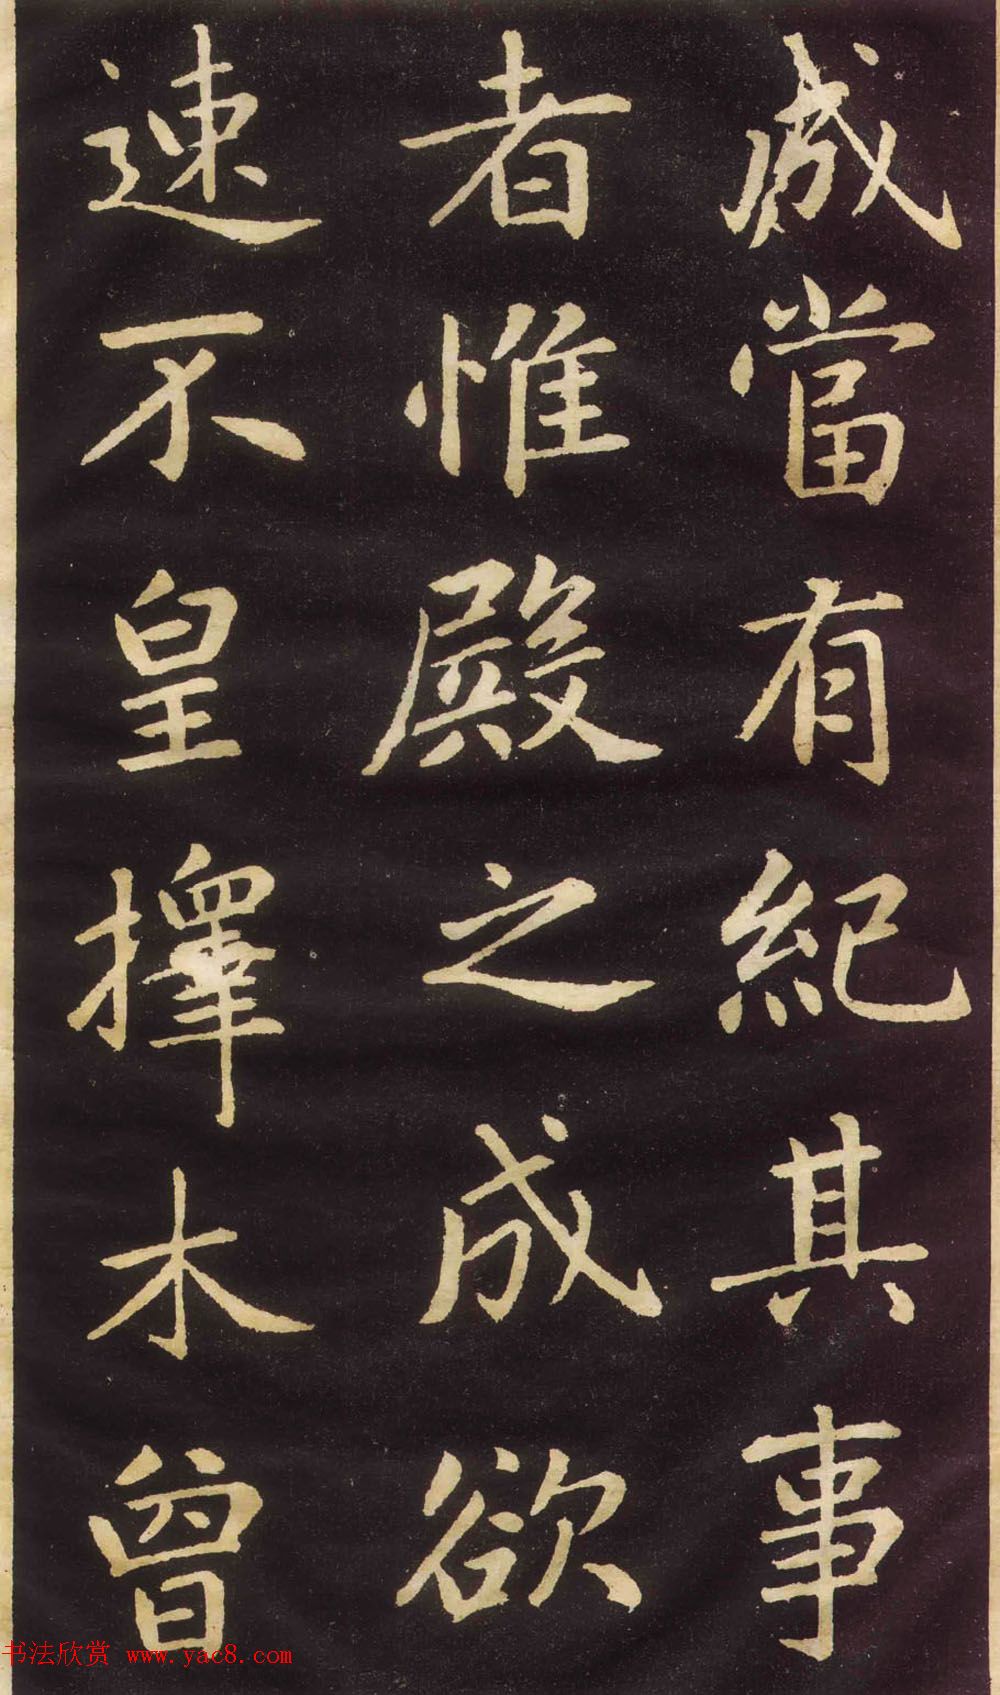 成當有紀其事
者惟殿之成欲
速不皇擇木曾
书法欣赏 www.yac8.com